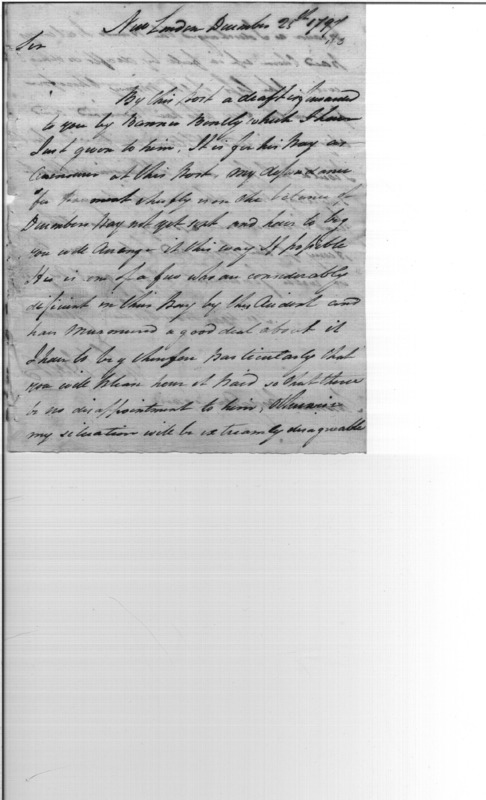 New London December 25th 1797
Sir
By this post a draft is forwarded
to you by which I have
Just given to him. It is for his Pay as
at this Post, my dependance
for payment chiefly is on the balance of
Decembers Pay not yet sent and have to beg
you will Arrange it this way If possible
He is one of a few who are considerably
deficient in their Pay by this Accident and
has Murmured a good deal about it
I have to beg therefore particularly that
you will please have it Paid so that there
be no disappointment to him, Otherwise
my situation will be extreamly disagreeable